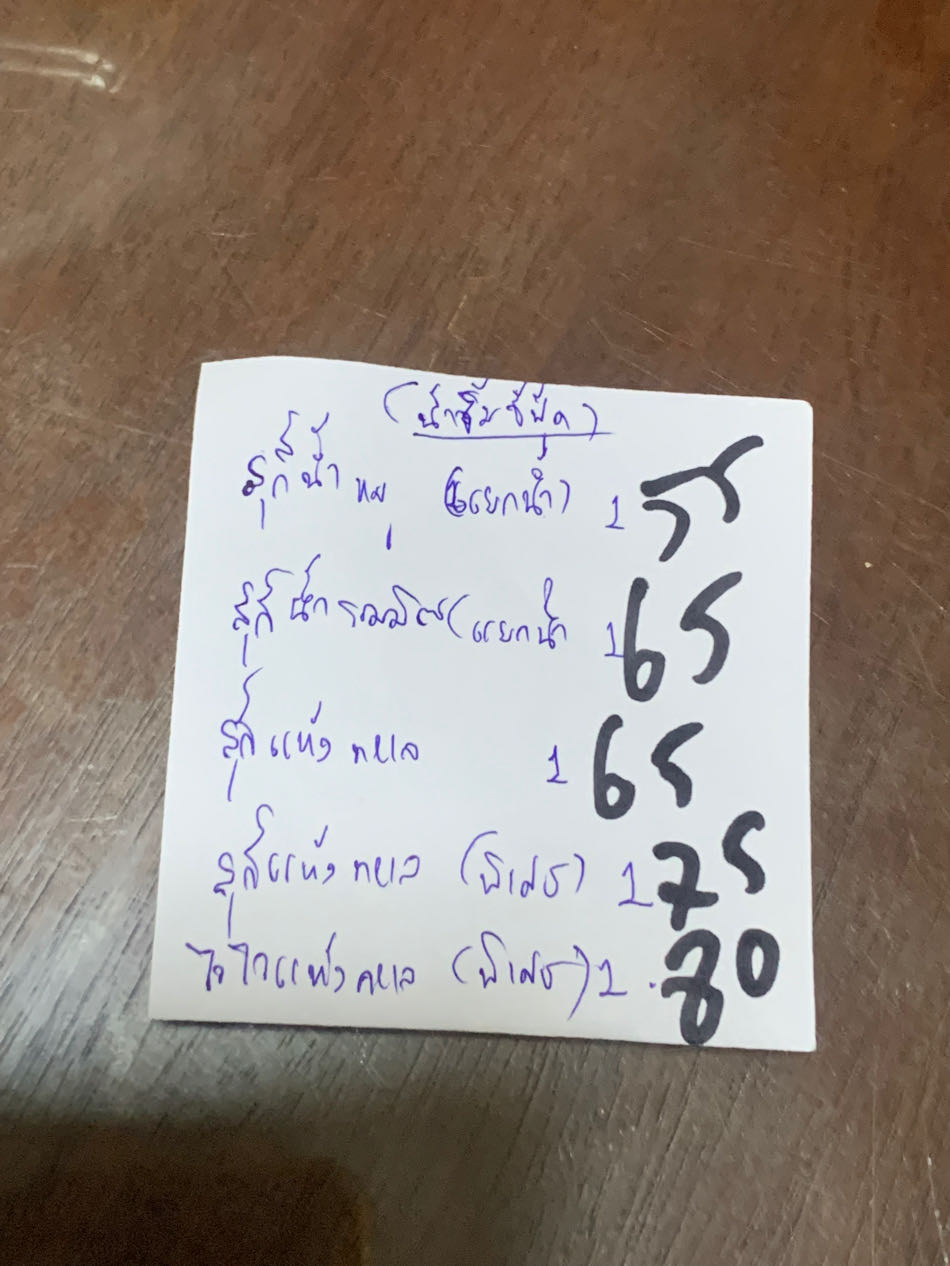 (น้ำจิ้มซีฟู้ด)
สุกี้น้ำ หมู (แยกน้ำ) 1 55
สุกี้น้ำรวมมิตร (แยกน้ำ 1 65
สุกี้แห้ง ทะเล 1 65
สุกี้แห้ง ทะเล (พิเศษ) 1 75
แห้ง ทะเล (พิเศษ) 1 80